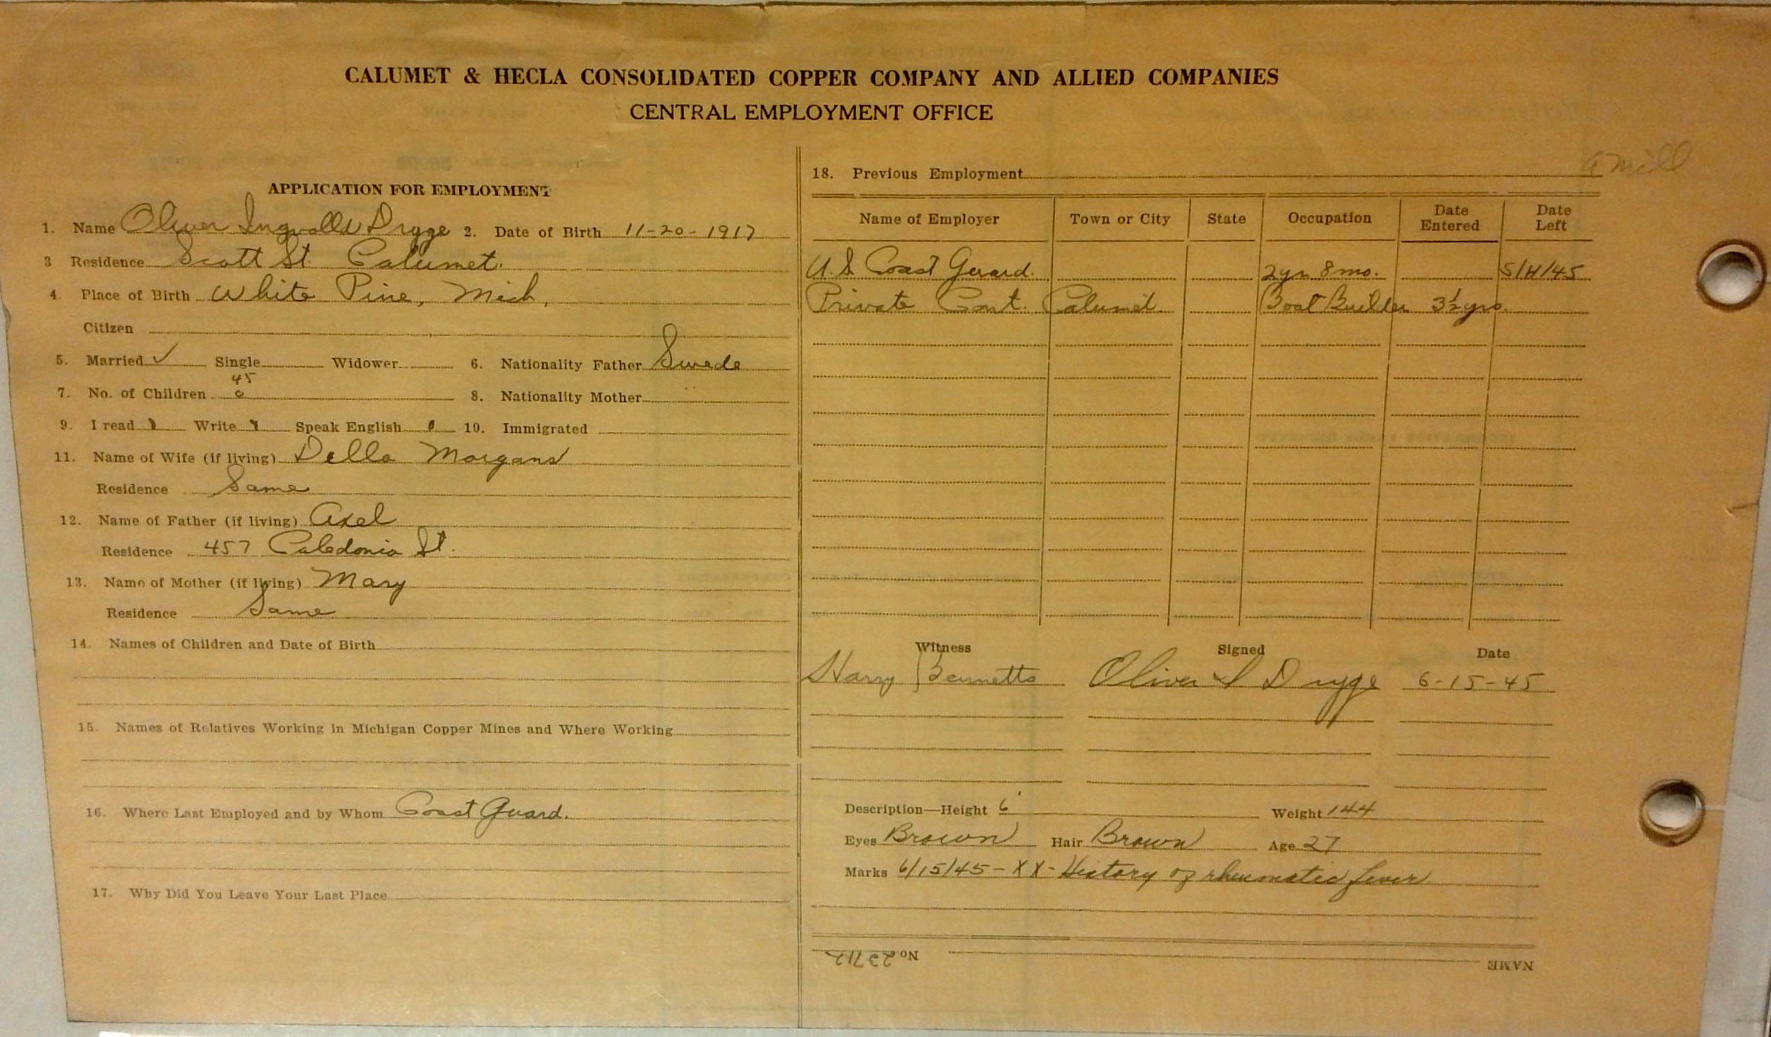 CALUMET & HECLA CONSOLIDATED COPPER COMPANY AND ALLIED COMPANIES
CENTRAL EMPLOYMENT OFFICE
a mill
APPLICATION FOR EMPLOYMENT
1. Name Oliver Ingvald Drygge 2. Date of Birth 11-20-1917
3 Residence Scott St. Calumet.
4. Place of Birth White Pine, Mich,
Citizen
5. Married ✓ Single Widower 6. Nationality Father Swede
45
7. No. of Children 0 8. Nationality Mother "
9. I read Write Speak English 10. Immigrated
11. Name of Wife (if living) Della Morgans
Residence Same
12. Name of Father (if living) Axel
Residence 457 Caledonia St.
13. Name of Mother (if living) Mary
Residence Same
14. Names of Children and Date of Birth
15. Names of Relatives Working in Michigan Copper Mines and Where Working
16. Where Last Employed and by Whom Coast Guard.
17. Why Did You Leave Your Last Place
18. Previous Employment
Name of Employer Town or City State Occupation Date Entered Date Left
U S Coast Guard. 2 yrs 8 mo. 5/4/45
Private Cont. Calumet. Boat Builder 3½ yrs.
Witness Signed Date
Harry Bennetts Oliver I Drygge 6-15-45
Description—Height 6' Weight 144
Eyes Brown Hair Brown Age 27
Marks 6/15/45 - XX - History of rheumatic fever
NAME No.